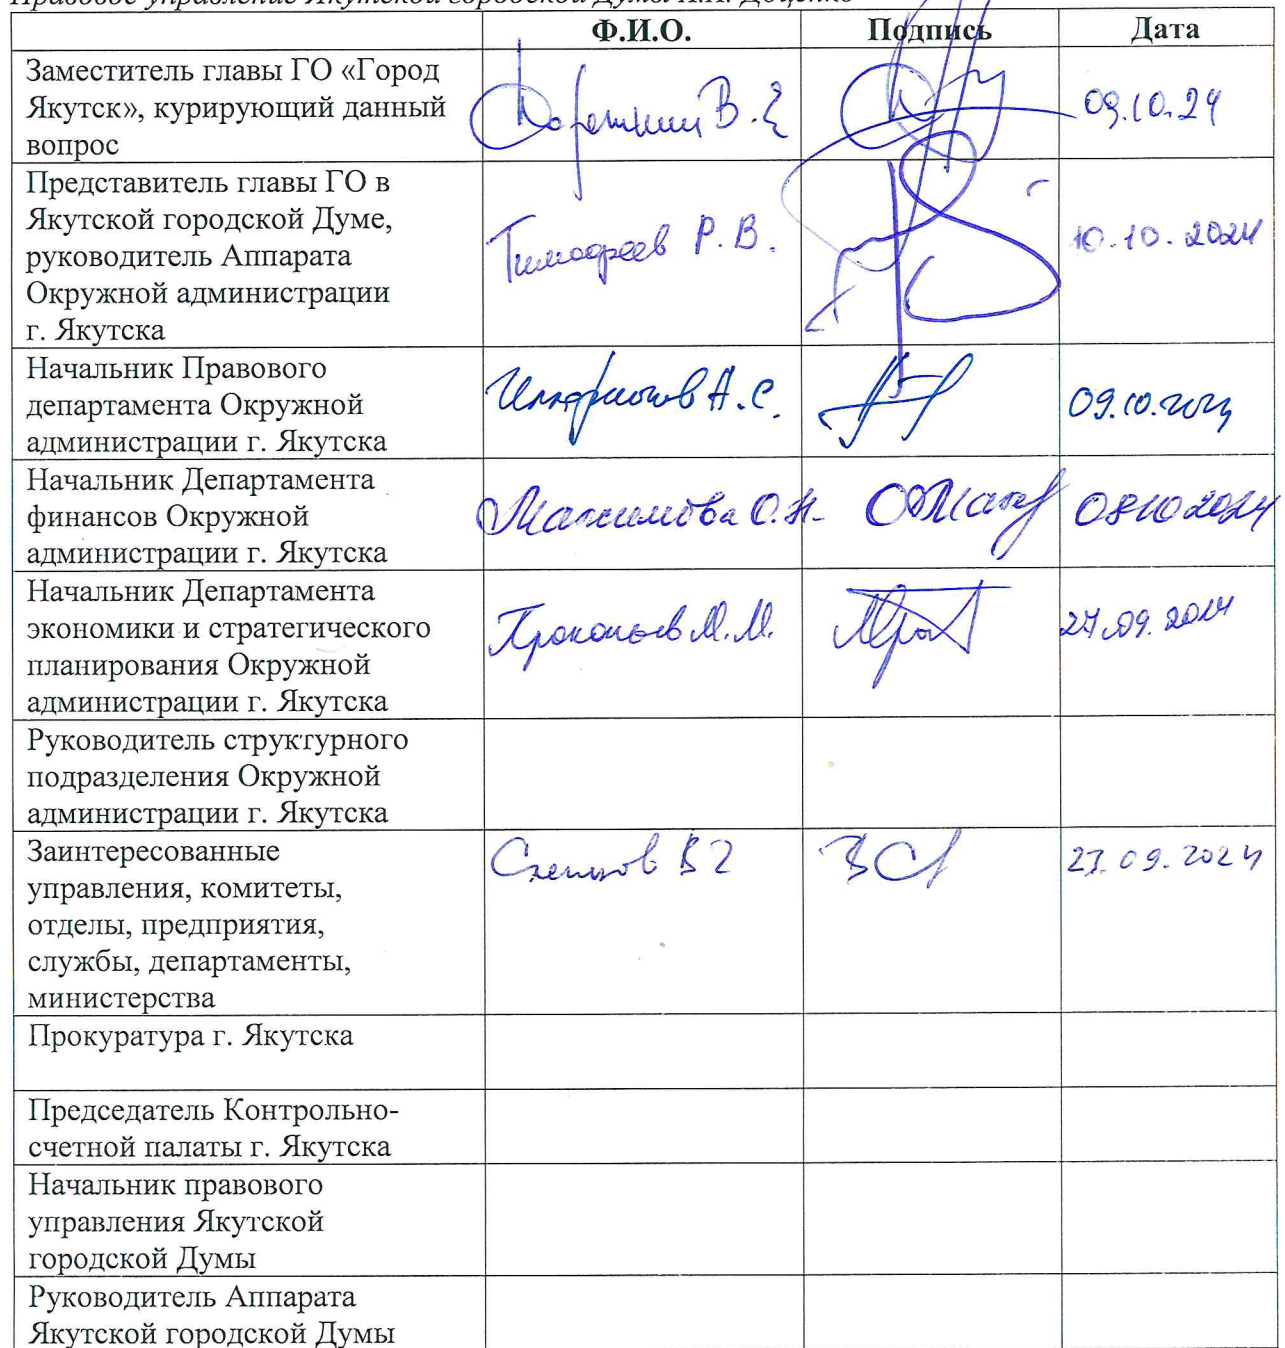 Правовое управление Якутской городской Думы
Ф.И.О. Подпись Дата
Заместитель главы ГО «Город
Якутск», курирующий данный
вопрос
В.Е 09.10.24
Представитель главы ГО в
Якутской городской Думе,
руководитель Аппарата
Окружной администрации
г. Якутска
Тимофеев Р.В. 10.10.2024
Начальник Правового
департамента Окружной
администрации г. Якутска
А.С. 09.10.2024
Начальник Департамента
финансов Окружной
администрации г. Якутска
Максимова О.Н. 08102024
Начальник Департамента
экономики и стратегического
планирования Окружной
администрации г. Якутска
Прокопьев М.М. 27.09.2024
Руководитель структурного
подразделения Окружной
администрации г. Якутска
Заинтересованные
управления, комитеты,
отделы, предприятия,
службы, департаменты,
министерства
Слепцов В Г 27.09.2024
Прокуратура г. Якутска
Председатель Контрольно-
счетной палаты г. Якутска
Начальник правового
управления Якутской
городской Думы
Руководитель Аппарата
Якутской городской Думы